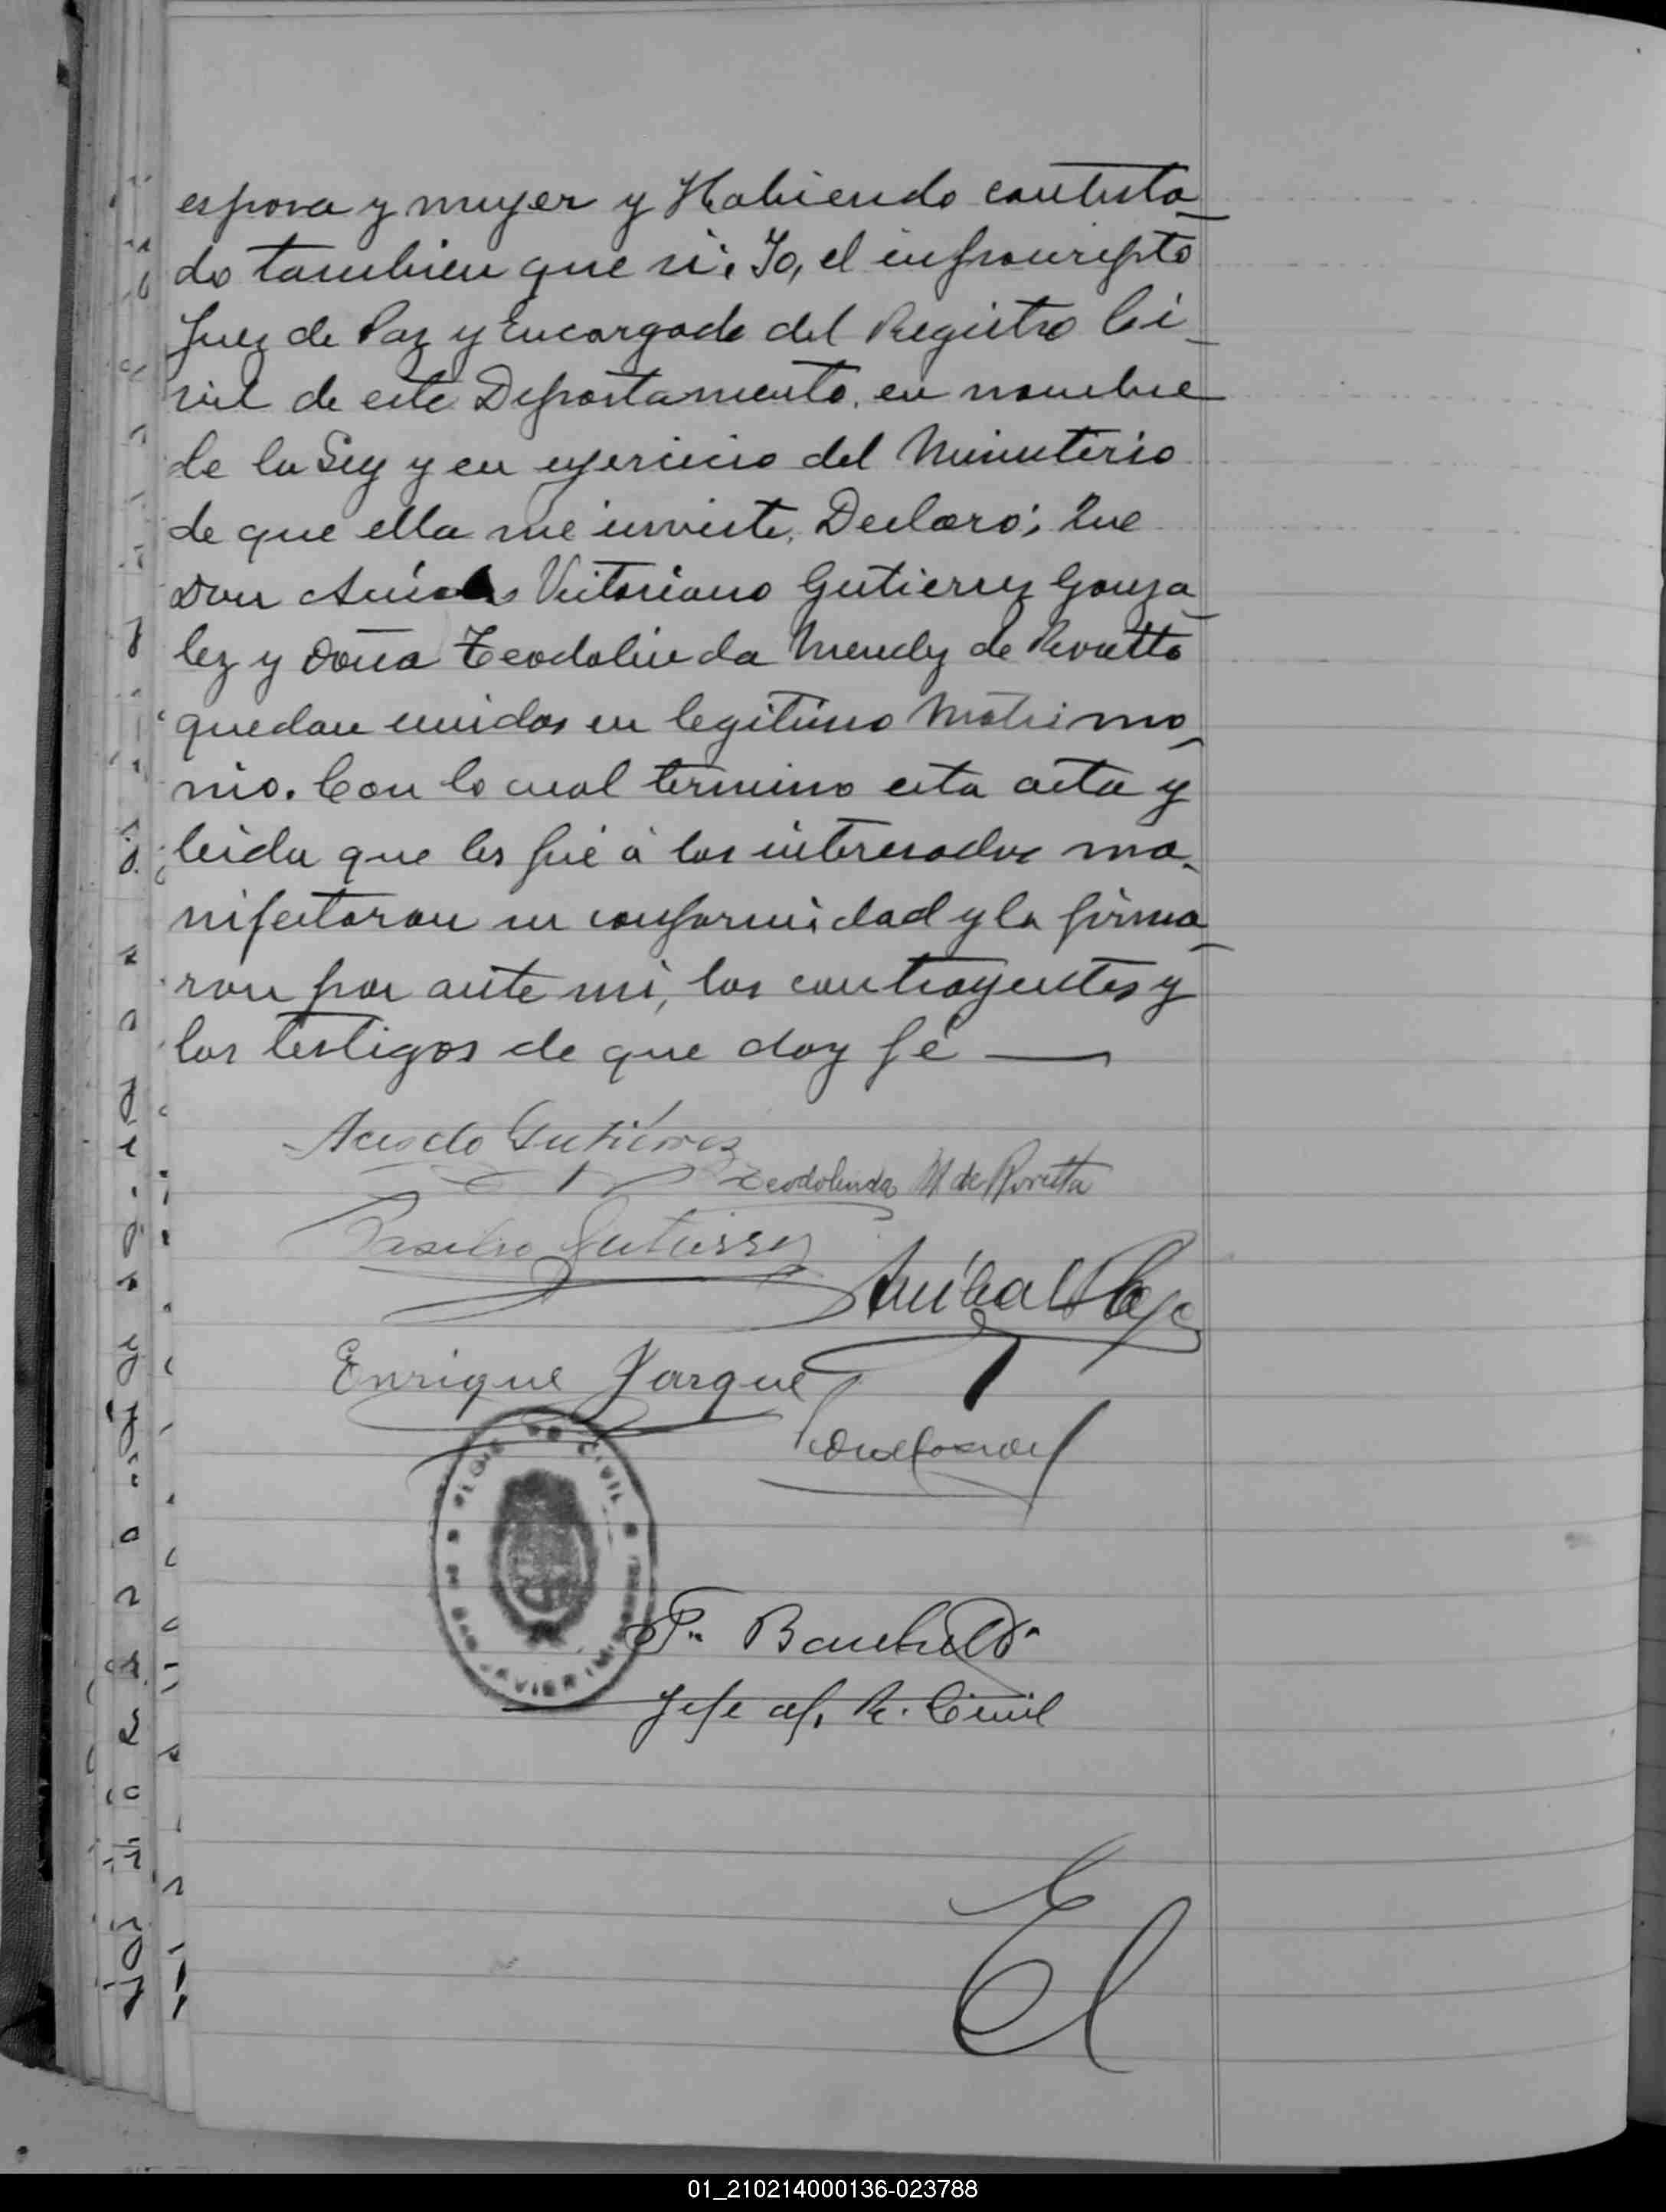 esposa y mujer y Habiendo contesta_
do tambien que si. Yo, el infrascripto
Juez de Paz y Encargado del Registro Ci_
vil de este Departamento, en nombre
de la Ley y en ejercicio del Ministerio
de que ella me inviste, Declaro; Que
Don Victoriano Gutierrez Gonza_
lez y Doña Teodolinda Mendez de Rovetto
quedan unidos en legitimo Matrimo_
nio. Con lo cual termino esta acta y
leida que les fué á los interesados ma_
nifestaron su conformidad y la firma_
ron por ante mi, los contrayentes y
los testigos de que doy fé —
Gutiérrez
Teodolinda M de Rovetta
Basilio Gutierrez
Anibal
Enrique Jarque
REGIS DE CIVIL
F. 
Jefe of. R. Civil
El
01_210214000136-023788